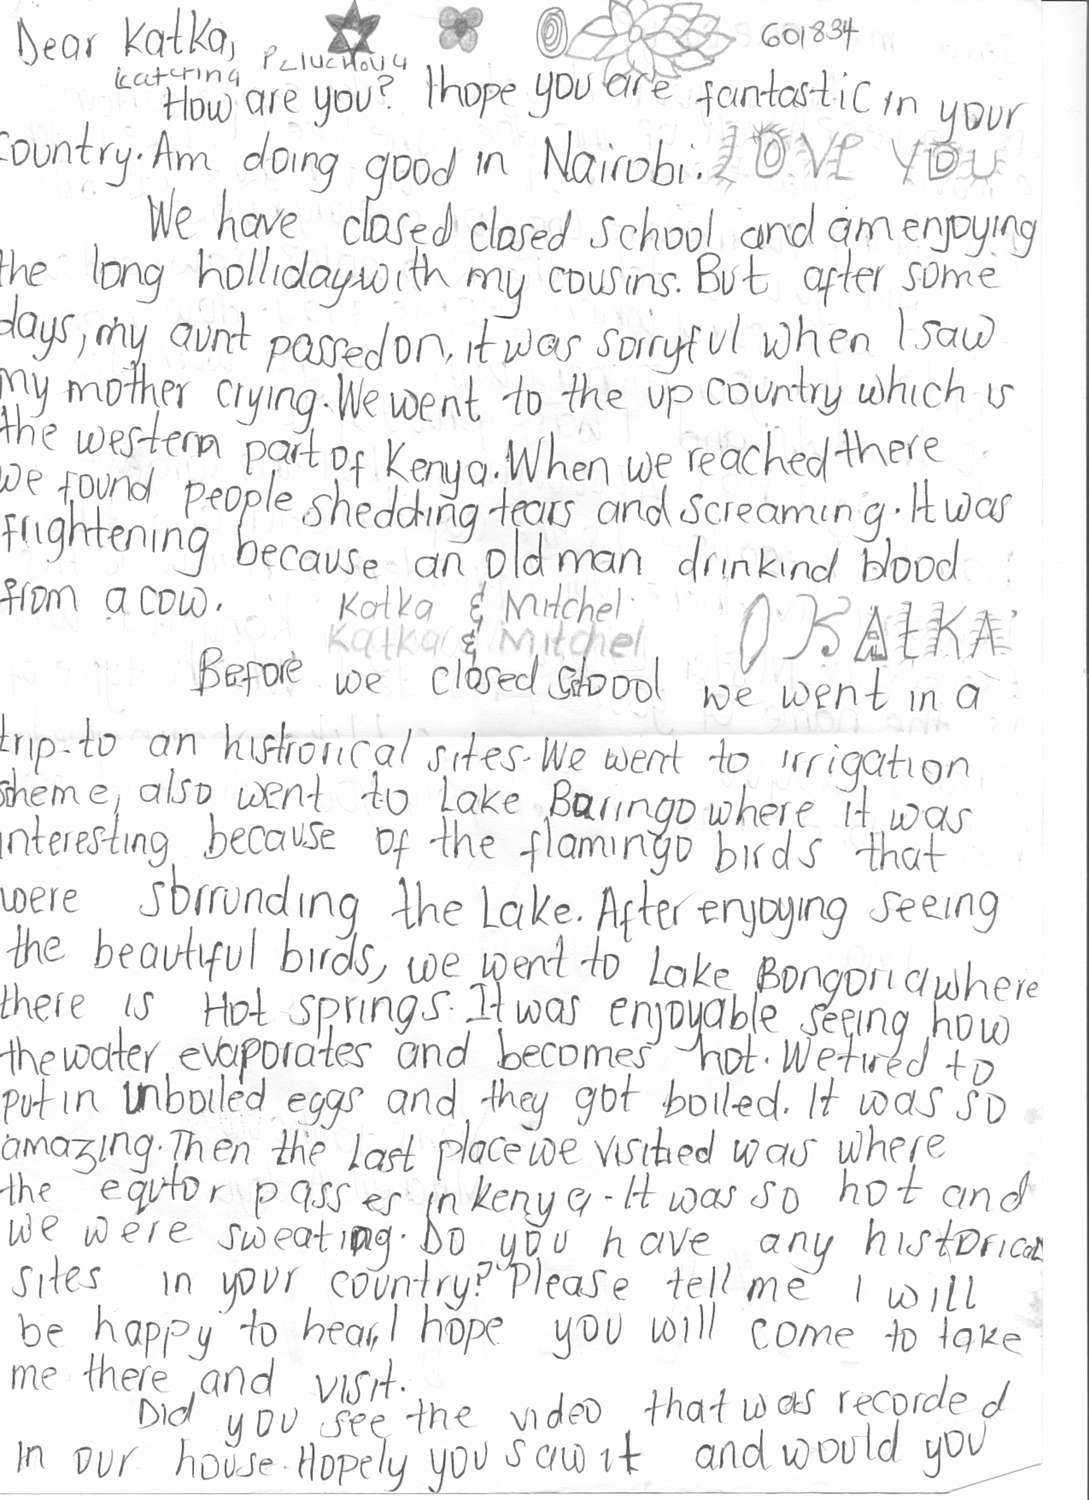 Dear Katka, 601834
Katerina Peluchova
How are you? I hope you are fantastic in your
country. Am doing good in Nairobi. LOVE YOU
We have closed closed school and am enjoying
the long holliday with my cousins. But after some
days, my aunt passed on, it was sorryful when I saw
my mother crying. We went to the up country which is
the western part of Kenya. When we reached there
we found people shedding tears and screaming. It was
frightening because an old man drinkind blood
from a cow. Katka & Mitchel
Katka & Mitchel KATKA
Before we closed we went in a
trip to an histrorical sites. We went to irrigation
sheme, also went to Lake Baringo where it was
interesting because of the flamingo birds that
were sorrunding the Lake. After enjoying seeing
the beautiful birds, we went to Lake Bongoria where
there is Hot springs. It was enjoyable seeing how
the water evaporates and becomes hot. We tired to
put in unboiled eggs and they got boiled. It was so
amazing. Then the last place we visitied was where
the equtor passes in Kenya. It was so hot and
we were sweating. Do you have any historical
sites in your country? Please tell me I will
be happy to hear, I hope you will come to take
me there and visit.
Did you see the video that was recorded
in our house. Hopely you saw it and would you